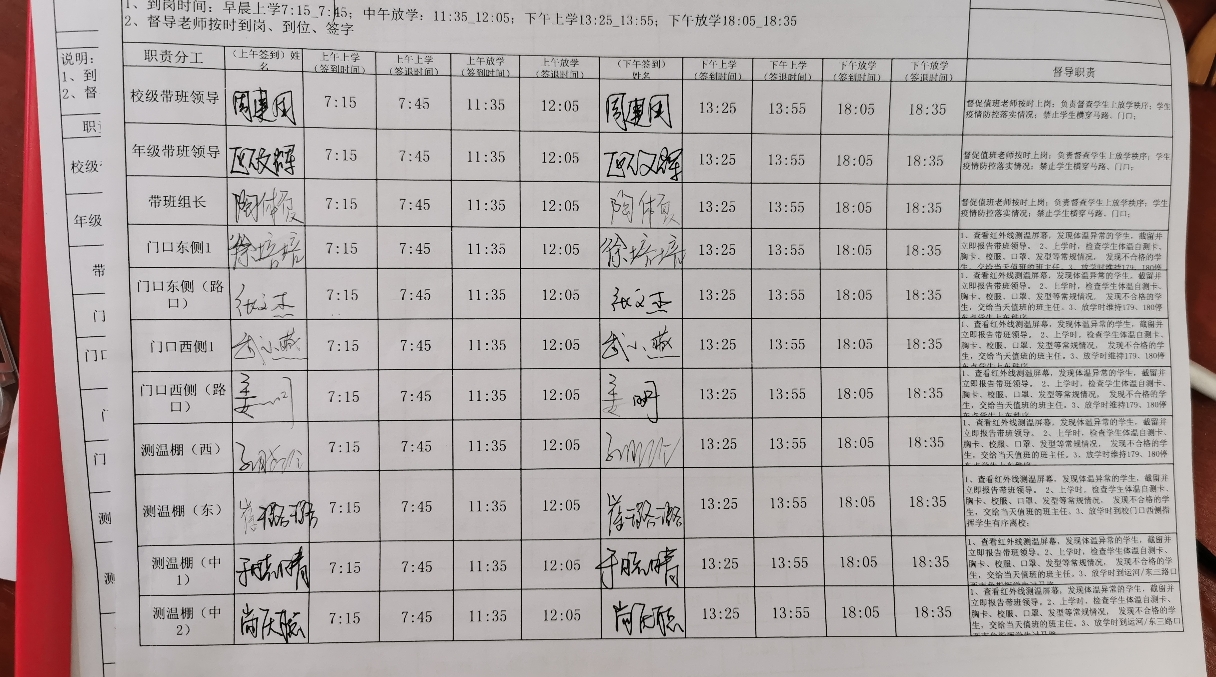 1、到岗时间：早晨上学7:15_7:45；中午放学：11:35_12:05；下午上学13:25_13:55；下午放学18:05_18:35
2、督导老师按时到岗、到位、签字
说明：
1、到
2、督
职责分工 （上午签到）姓名 上午上学（签到时间） 上午上学（签退时间） 上午放学（签到时间） 上午放学（签退时间） （下午签到）姓名 下午上学（签到时间） 下午上学（签退时间） 下午放学（签到时间） 下午放学（签退时间） 督导职责
校级带班领导 周惠国 7:15 7:45 11:35 12:05 周惠国 13:25 13:55 18:05 18:35 督促值班老师按时上岗；负责督查学生上放学秩序；学生
疫情防控落实情况；禁止学生横穿马路、门口；
年级带班领导 7:15 7:45 11:35 12:05 13:25 13:55 18:05 18:35 督促值班老师按时上岗；负责督查学生上放学秩序；学生
疫情防控落实情况；禁止学生横穿马路、门口；
带班组长 陶体夏 7:15 7:45 11:35 12:05 陶体夏 13:25 13:55 18:05 18:35 督促值班老师按时上岗；负责督查学生上放学秩序；学生
疫情防控落实情况；禁止学生横穿马路、门口；
门口东侧1 徐培培 7:15 7:45 11:35 12:05 徐培培 13:25 13:55 18:05 18:35 1、查看红外线测温屏幕，发现体温异常的学生，截留并
立即报告带班领导。 2、上学时，检查学生体温自测卡、
胸卡、校服、口罩、发型等常规情况， 发现不合格的学
生，交给当天值班的班主任。3、放学时维持179、180停
门口东侧（路口） 张文杰 7:15 7:45 11:35 12:05 张文杰 13:25 13:55 18:05 18:35 1、查看红外线测温屏幕，发现体温异常的学生，截留并
立即报告带班领导。 2、上学时，检查学生体温自测卡、
胸卡、校服、口罩、发型等常规情况， 发现不合格的学
生，交给当天值班的班主任。3、放学时维持179、180停
门口西侧1 武小燕 7:15 7:45 11:35 12:05 武小燕 13:25 13:55 18:05 18:35 1、查看红外线测温屏幕，发现体温异常的学生，截留并
立即报告带班领导。 2、上学时，检查学生体温自测卡、
胸卡、校服、口罩、发型等常规情况， 发现不合格的学
生，交给当天值班的班主任。3、放学时维持179、180停
门口西侧（路口） 姜明 7:15 7:45 11:35 12:05 姜明 13:25 13:55 18:05 18:35 1、查看红外线测温屏幕，发现体温异常的学生，截留并
立即报告带班领导。 2、上学时，检查学生体温自测卡、
胸卡、校服、口罩、发型等常规情况， 发现不合格的学
生，交给当天值班的班主任。3、放学时维持179、180停
测温棚（西） 7:15 7:45 11:35 12:05 13:25 13:55 18:05 18:35 1、查看红外线测温屏幕，发现体温异常的学生，截留并
立即报告带班领导。 2、上学时，检查学生体温自测卡、
胸卡、校服、口罩、发型等常规情况， 发现不合格的学
生，交给当天值班的班主任。3、放学时维持179、180停
测温棚（东） 崔璐璐 7:15 7:45 11:35 12:05 崔璐璐 13:25 13:55 18:05 18:35 1、查看红外线测温屏幕，发现体温异常的学生，截留并
立即报告带班领导。 2、上学时，检查学生体温自测卡、
胸卡、校服、口罩、发型等常规情况， 发现不合格的学
生，交给当天值班的班主任。3、放学时到校门口西侧指
挥学生有序离校；
测温棚（中1） 于晓倩 7:15 7:45 11:35 12:05 于晓倩 13:25 13:55 18:05 18:35 1、查看红外线测温屏幕，发现体温异常的学生，截留并
立即报告带班领导。2、上学时，检查学生体温自测卡、
胸卡、校服、口罩、发型等常规情况， 发现不合格的学
生，交给当天值班的班主任。3、放学时到运河/东三路口
测温棚（中2） 7:15 7:45 11:35 12:05 13:25 13:55 18:05 18:35 1、查看红外线测温屏幕，发现体温异常的学生，截留并
立即报告带班领导。2、上学时，检查学生体温自测卡、
胸卡、校服、口罩、发型等常规情况， 发现不合格的学
生，交给当天值班的班主任。3、放学时到运河/东三路口